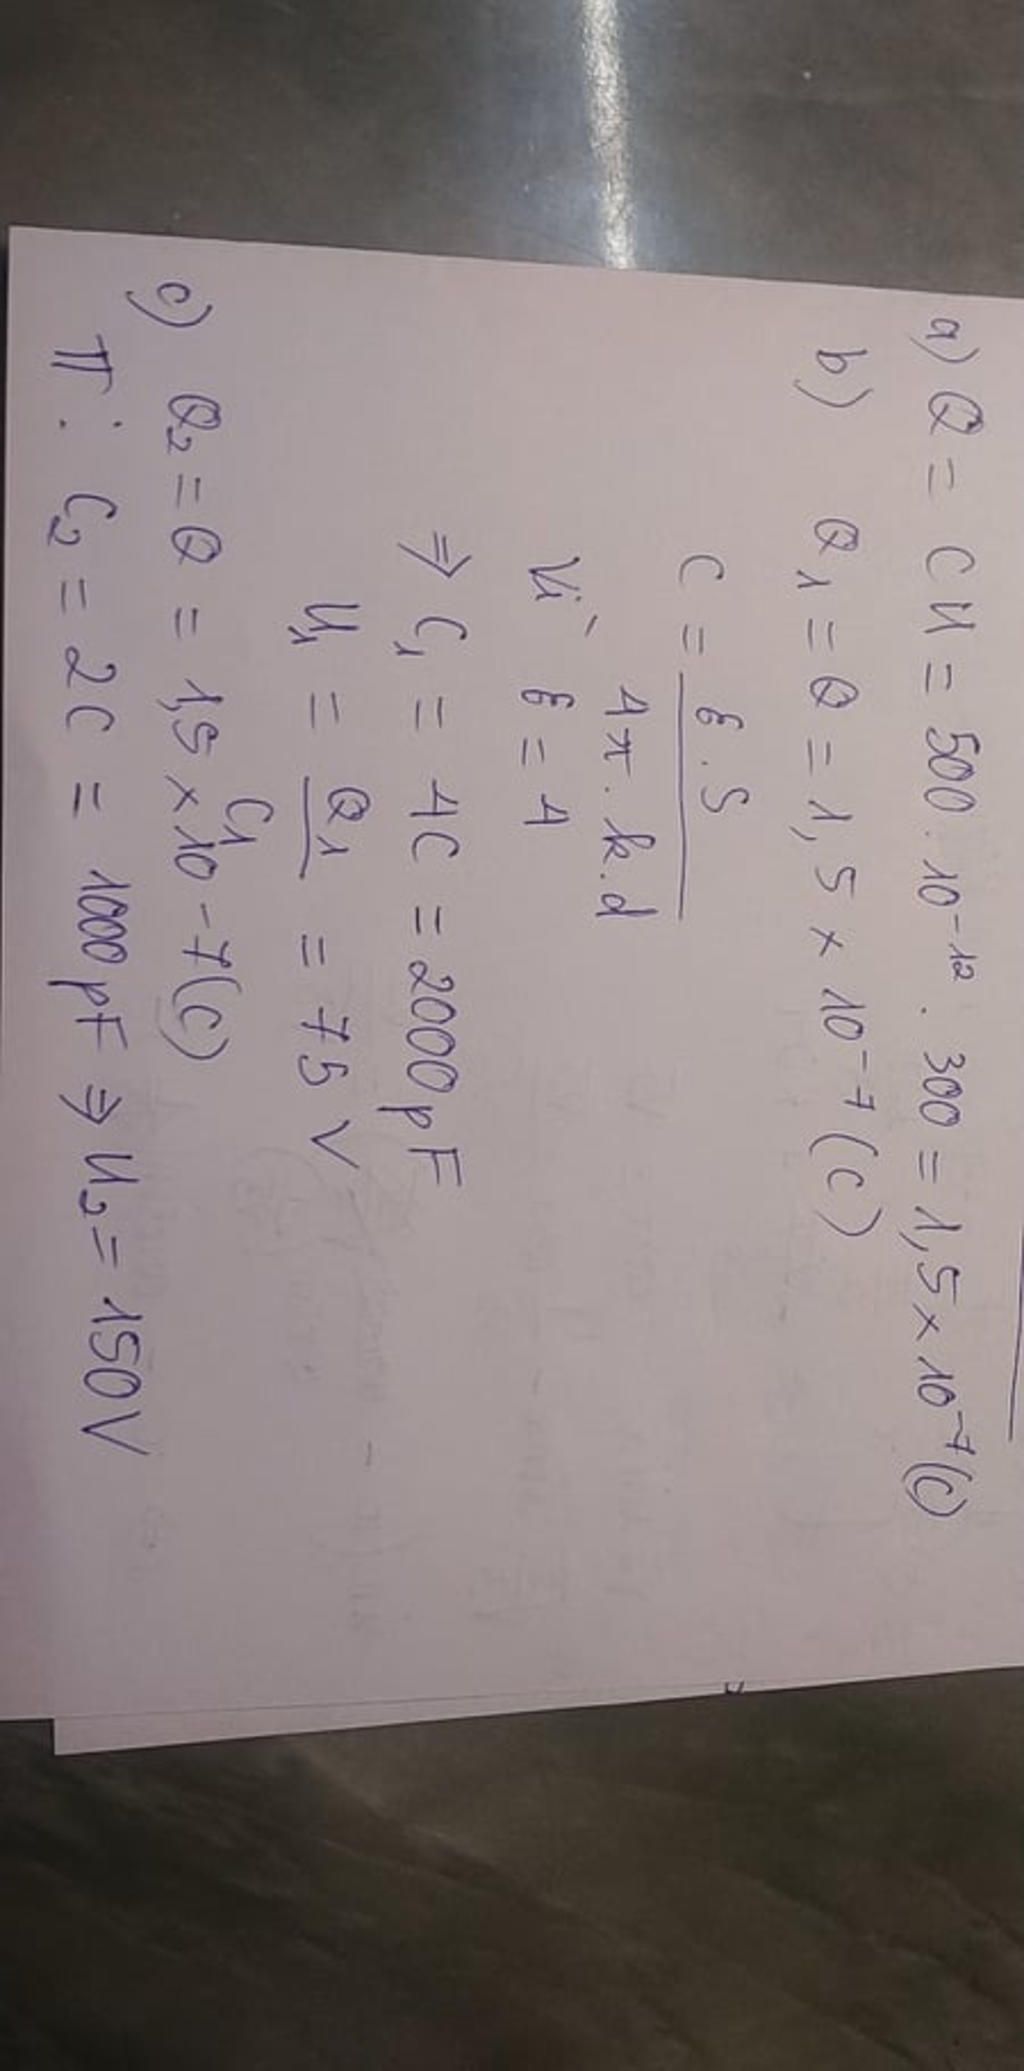 a) Q = CU = 500 . 10⁻¹² . 300 = 1,5 × 10⁻⁷ (C)
b) Q₁ = Q = 1,5 × 10⁻⁷ (C)
C = ε.S / 4π.k.d
Vì ε = 4
⇒ C₁ = 4C = 2000 pF
U₁ = Q₁ / C₁ = 75 V
c) Q₂ = Q = 1,5 × 10⁻⁷ (C)
TT: C₂ = 2C = 1000 pF ⇒ U₂ = 150 V